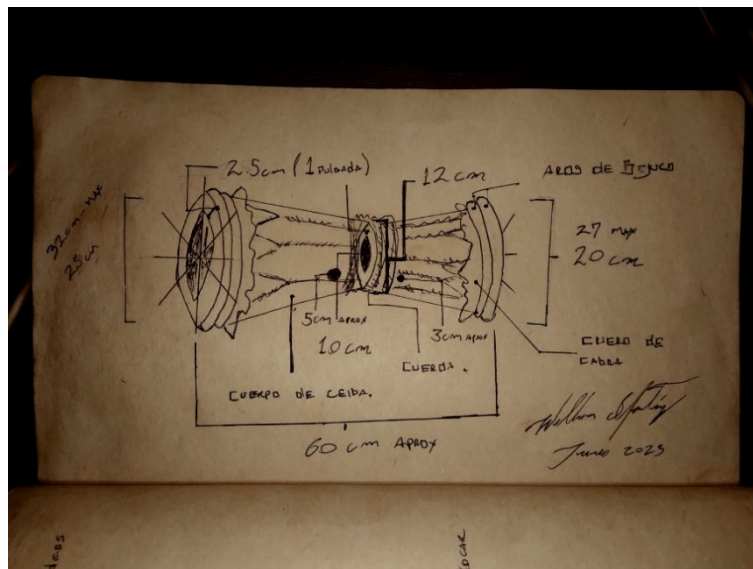 2.5cm (1 PULGADA)
12 cm
AROS DE BEJUCO
32cm MAX
25cm
27 MAX
20 cm
5cm APROX
3cm APROX
10 cm
CUERO DE
CABRA
CUERDA.
CUERPO DE CEIBA.
60 cm APROX
Junio 2023
OCAR